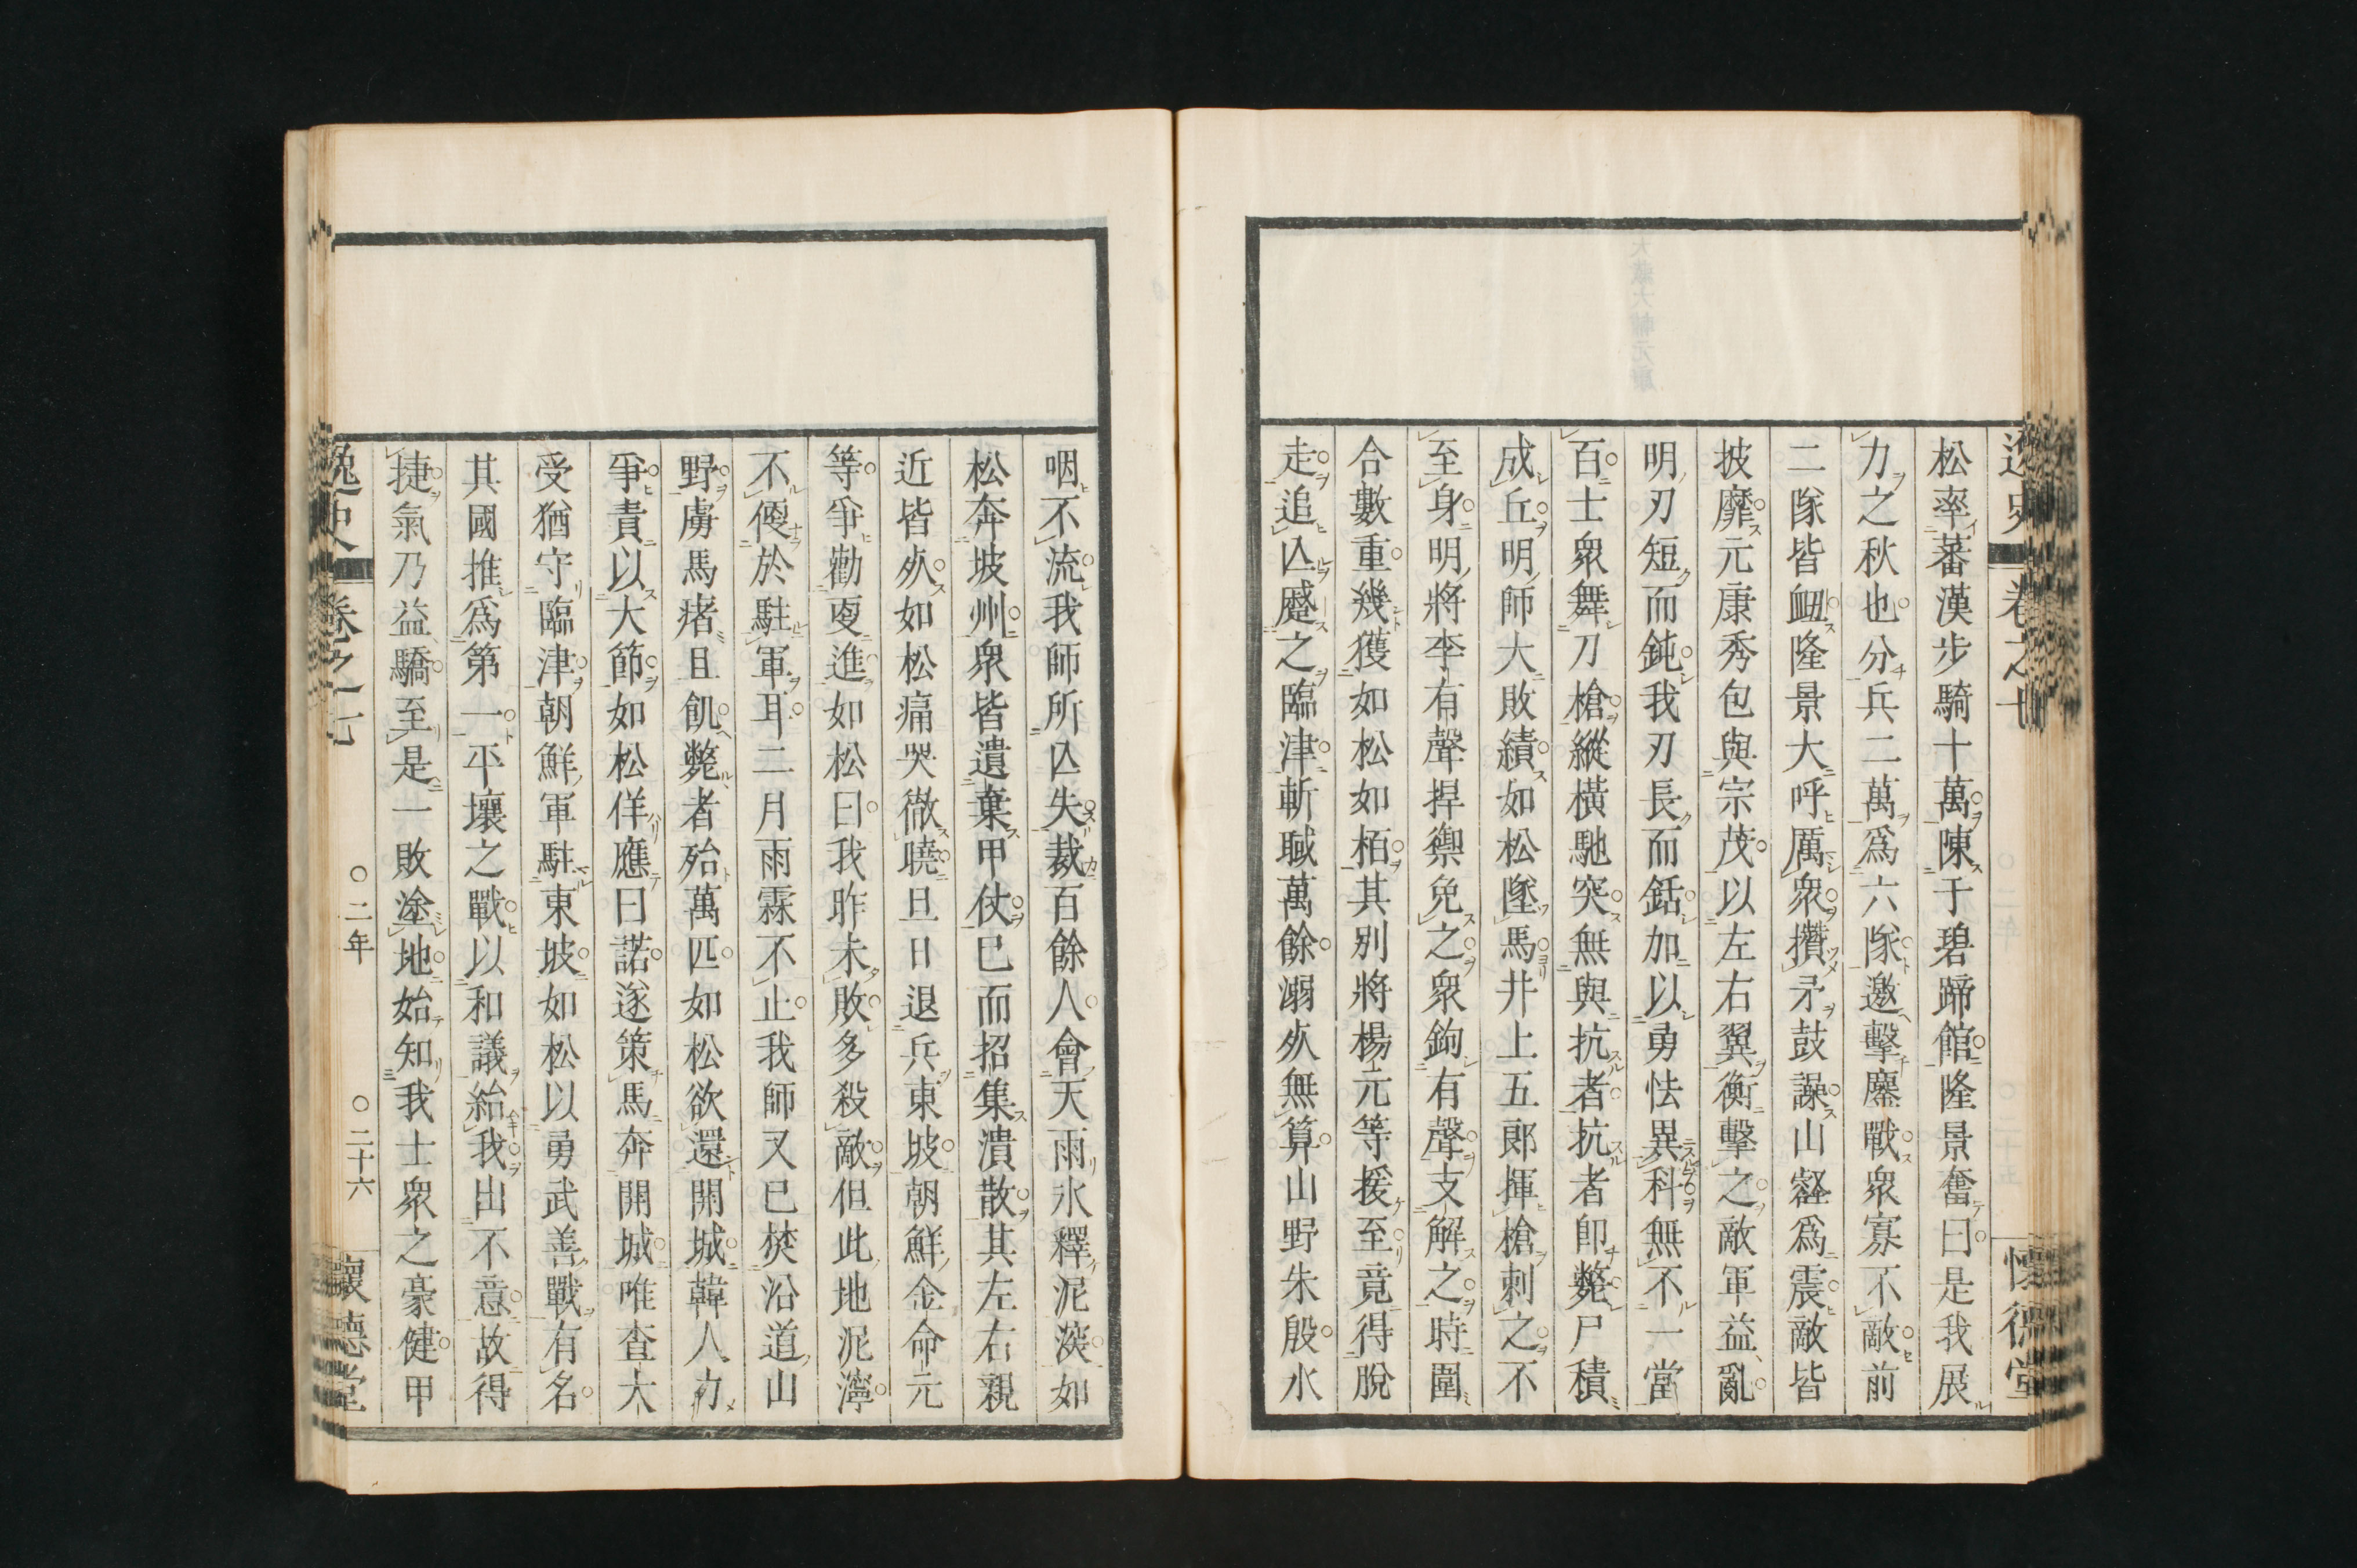 松率蕃漢步騎十萬陳于碧蹄館隆景奮曰是我展
力之秋也分兵二萬爲六隊邀擊鏖戰衆寡不敵前
二隊皆衄隆景大呼厲衆攢矛鼓譟山壑爲震敵皆
披靡元康秀包與宗茂以左右翼衡擊之敵軍益亂
明刃短而鈍我刃長而銛加以勇怯異科無不一當
百士衆舞刀槍縱橫馳突無與抗者抗者卽斃尸積
成丘明師大敗績如松墜馬井上五郎揮槍刺之不
至身明將李有聲捍禦免之衆鉤有聲支解之時圍
合數重幾獲如松如栢其別將楊元等援至竟得脫
走追亾蹙之臨津斬聝萬餘溺死無算山野朱殷水
咽不流我師所亾失裁百餘人會天雨氷釋泥深如
松奔坡州衆皆遺棄甲仗已而招集潰散其左右親
近皆死如松痛哭徹曉旦日退兵東坡朝鮮金命元
等爭勸更進如松曰我昨未敗多殺敵但此地泥濘
不便於駐軍耳二月雨霖不止我師又已焚沿道山
野虜馬瘏且飢斃者殆萬匹如松欲還開城韓人力
爭責以大節如松佯應曰諾遂策馬奔開城唯查大
受猶守臨津朝鮮軍駐東坡如松以勇武善戰有名
其國推爲第一平壤之戰以和議紿我出不意故得
捷氣乃益驕至是一敗塗地始知我士衆之豪健甲
逸史 卷之七 ○二年 ○二十六 懷德堂